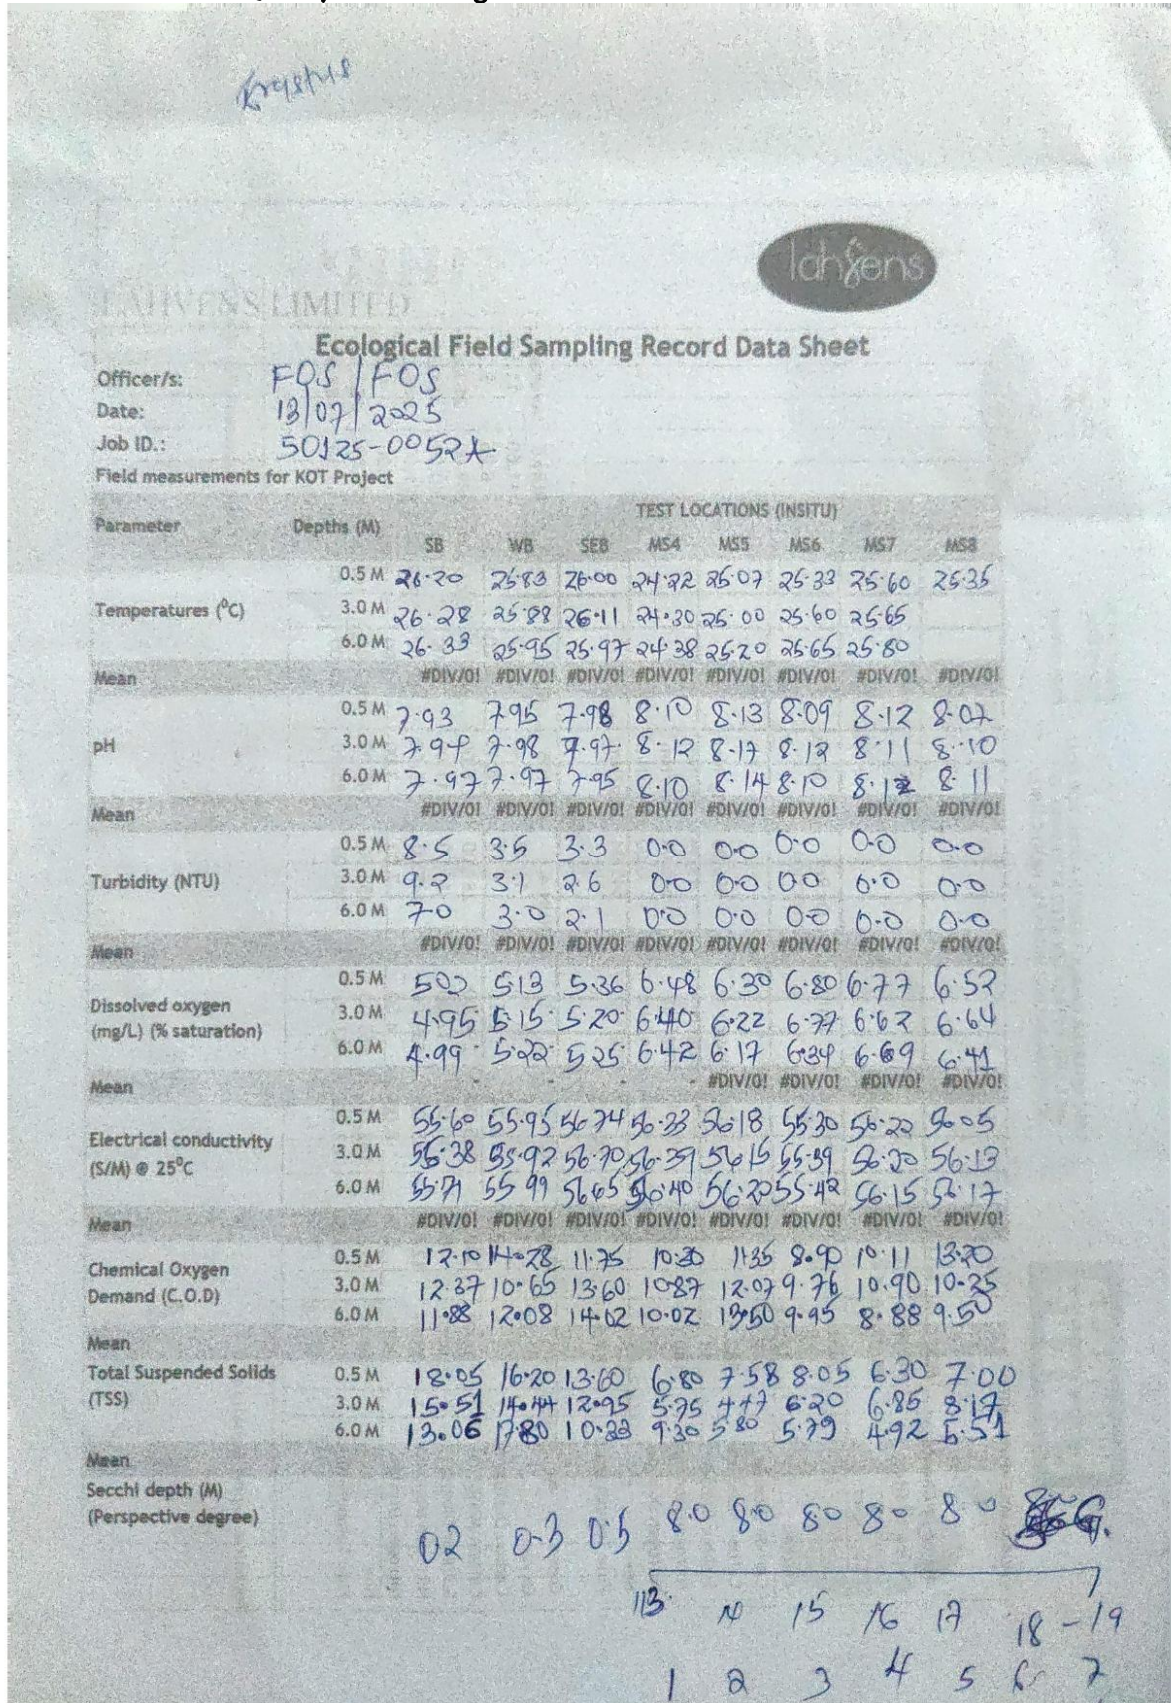 Erastus
lahvens
LAHVENS LIMITED
Ecological Field Sampling Record Data Sheet
Officer/s: FOS / FOS
Date: 13/07/2025
Job ID.: 50125-0052A
Field measurements for KOT Project
Parameter Depths (M) TEST LOCATIONS (INSITU)
SB WB SEB MS4 MS5 MS6 MS7 MS8
0.5 M 26.20 25.83 26.00 24.22 25.07 25.33 25.60 25.35
Temperatures (⁰C) 3.0 M 26.28 25.88 26.11 24.30 25.00 25.60 25.65
6.0 M 26.33 25.95 25.97 24.38 25.20 25.65 25.80
Mean #DIV/0! #DIV/0! #DIV/0! #DIV/0! #DIV/0! #DIV/0! #DIV/0! #DIV/0!
0.5 M 7.93 7.95 7.98 8.10 8.13 8.09 8.12 8.07
pH 3.0 M 7.98 7.97 8.12 8.17 8.12 8.11 8.10
6.0 M 7.97 7.97 7.95 8.10 8.14 8.10 8.12 8.11
Mean #DIV/0! #DIV/0! #DIV/0! #DIV/0! #DIV/0! #DIV/0! #DIV/0! #DIV/0!
0.5 M 8.5 3.5 3.3 0.0 0.0 0.0 0.0 0.0
Turbidity (NTU) 3.0 M 9.2 3.1 2.6 0.0 0.0 0.0 0.0 0.0
6.0 M 7.0 3.0 2.1 0.0 0.0 0.0 0.0 0.0
Mean #DIV/0! #DIV/0! #DIV/0! #DIV/0! #DIV/0! #DIV/0! #DIV/0! #DIV/0!
0.5 M 5.02 5.13 5.36 6.48 6.30 6.80 6.77 6.52
Dissolved oxygen
(mg/L) (% saturation) 3.0 M 4.95 5.15 5.20 6.40 6.22 6.77 6.62 6.64
6.0 M 4.99 5.22 5.25 6.42 6.17 6.34 6.69 6.41
Mean - - - - #DIV/0! #DIV/0! #DIV/0! #DIV/0!
0.5 M 55.60 55.95 56.74 56.33 56.18 55.30 56.22 56.05
Electrical conductivity
(S/M) @ 25⁰C 3.0 M 56.38 55.92 56.70 56.39 56.15 55.39 56.20 56.13
6.0 M 55.71 55.99 56.65 56.40 56.20 55.42 56.15 56.17
Mean #DIV/0! #DIV/0! #DIV/0! #DIV/0! #DIV/0! #DIV/0! #DIV/0! #DIV/0!
Chemical Oxygen 0.5 M 12.10 14.28 11.75 10.30 11.35 8.90 10.11 13.20
Demand (C.O.D) 3.0 M 12.37 10.65 13.60 10.87 12.07 9.76 10.90 10.25
6.0 M 11.88 12.08 14.02 10.02 13.50 9.95 8.88 9.50
Mean
Total Suspended Solids 0.5 M 18.05 16.20 13.60 6.80 7.58 8.05 6.30 7.00
(TSS) 3.0 M 15.51 14.44 12.95 5.75 4.47 6.20 6.85 8.17
6.0 M 13.06 17.80 10.33 9.30 5.80 5.79 4.92 5.51
Mean
Secchi depth (M)
(Perspective degree) 0.2 0.3 0.5 8.0 8.0 8.0 8.0 8.0
113 15 16 17 18 - 19
1 2 3 4 5 6 7